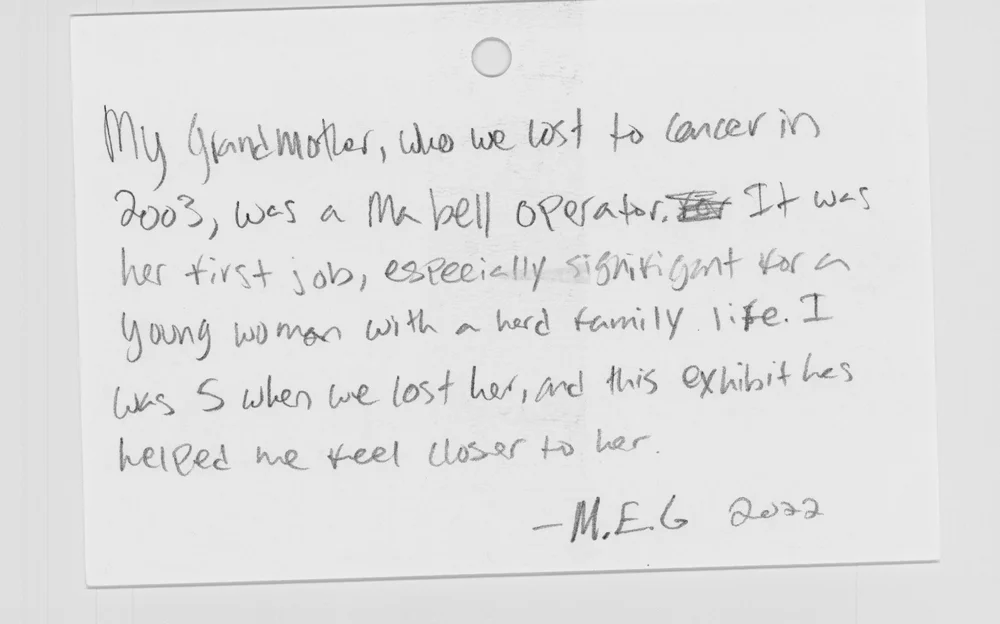 My Grandmother, who we lost to cancer in
2003, was a Ma bell operator. It was
her first job, especially signifigant for a
young woman with a hard family life. I
was 5 when we lost her, and this exhibit has
helped me feel closer to her.
—M.E.G 2022